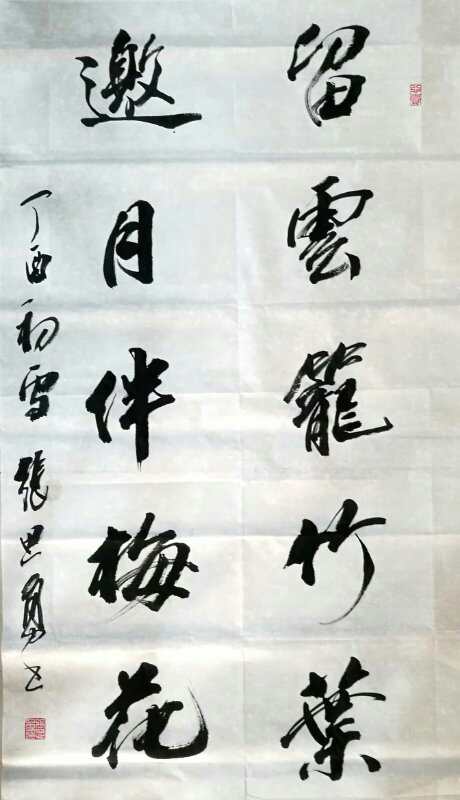 留雲籠竹葉
邀月伴梅花
丁酉初雪張世勇书